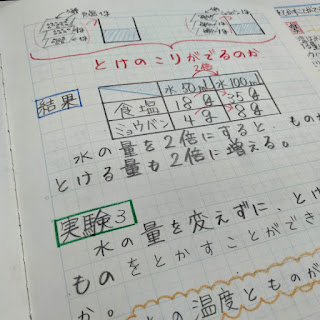 とけのこりがでるのか
2倍
結果
水50ml 水100ml
食塩 18g 35g
ミョウバン 4g 8g
水の量を2倍にすると もの
とける量も2倍に増える。
実験3
水の量を変えずに、とけ
ものをとかすことができ
か。 の温度とものが